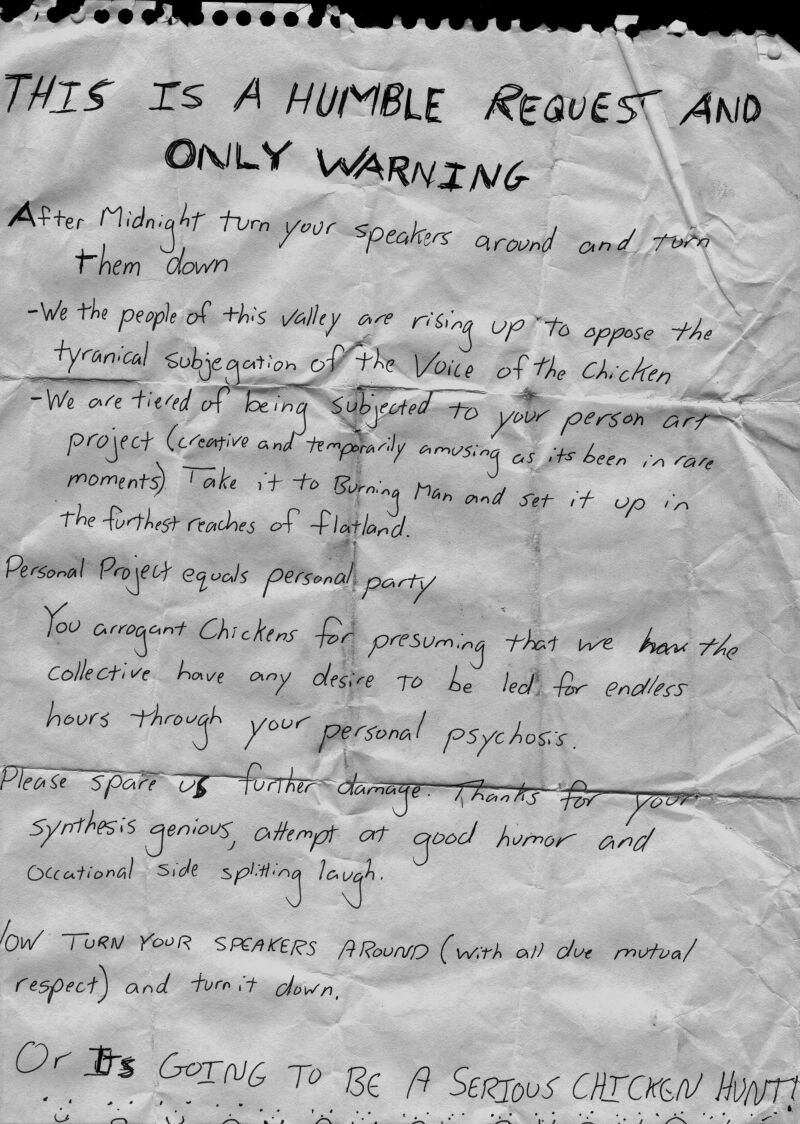 THIS IS A HUMBLE REQUEST AND
ONLY WARNING
After Midnight turn your speakers around and turn
them down
-We the people of this valley are rising up to oppose the
tyranical subjegation of the Voice of the Chicken
-We are tiered of being subjected to your person art
project (creative and temporarily amusing as its been in rare
moments) Take it to Burning Man and set it up in
the furthest reaches of flatland.
Personal Project equals personal party
You arrogant Chickens for presuming that we the
collective have any desire to be led for endless
hours through your personal psychosis.
Please spare us further damage. Thanks for your
synthesis genious, attempt at good humor and
occational side splitting laugh.
OW TURN YOUR SPEAKERS AROUND (with all due mutual
respect) and turn it down.
Or Its GOING TO BE A SERIOUS CHICKEN HUNT!